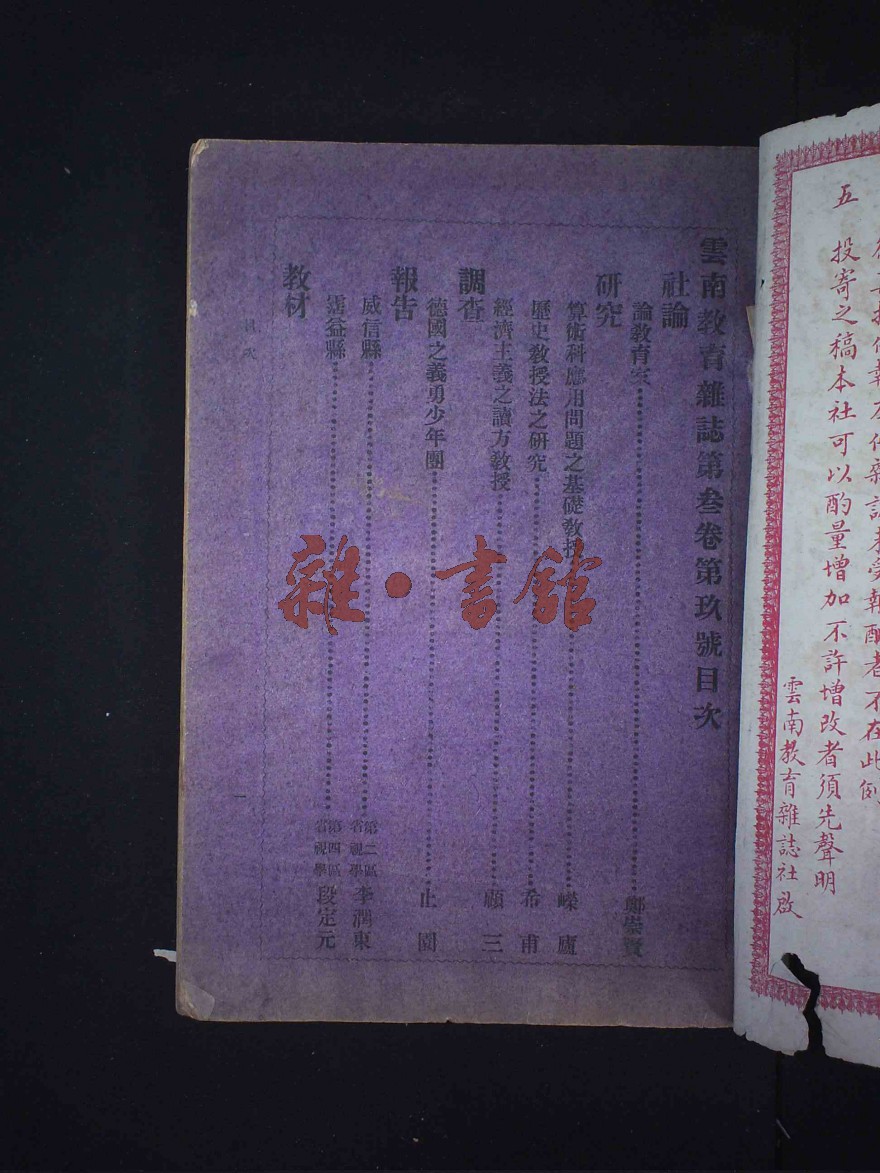 五　投寄之稿本社可以酌量增加不許增改者須先聲明
雲南教育雜誌社啟
雲南教育雜誌第叁卷第玖號目次
社論
論教育家 鄭崇賢
研究
算術科應用問題之基礎教授 嶸廬
歷史教授法之研究 希甫
經濟主義之讀方教授 顧三
調查
德國之義勇少年團 止園
報告
威信縣 第二區省視學 李潤東
霑益縣 第四區省視學 段定元
教材
目次
一
雜·書館